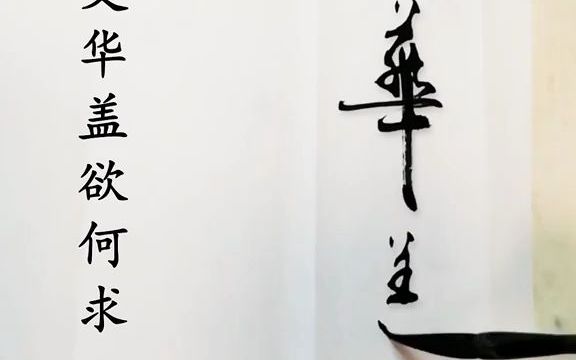 华盖欲何求
華